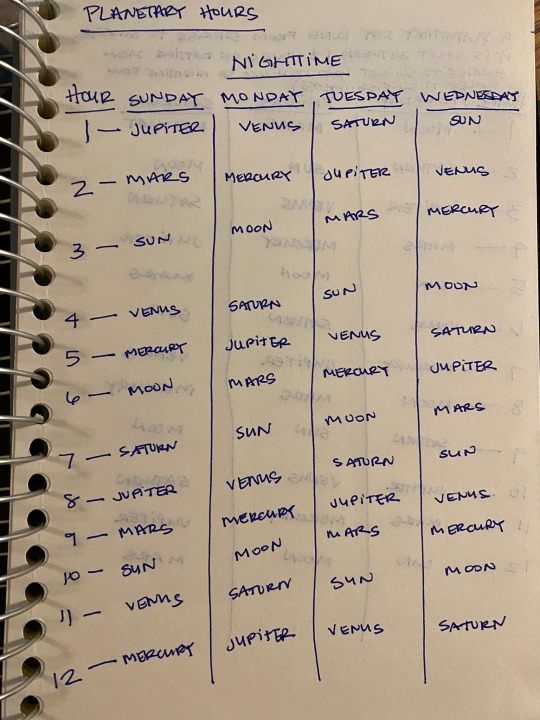 PLANETARY HOURS
NIGHTTIME
HOUR SUNDAY MONDAY TUESDAY WEDNESDAY
1 — JUPITER VENUS SATURN SUN
2 — MARS MERCURY JUPITER VENUS
3 — SUN MOON MARS MERCURY
4 — VENUS SATURN SUN MOON
5 — MERCURY JUPITER VENUS SATURN
6 — MOON MARS MERCURY JUPITER
7 — SATURN SUN MOON MARS
8 — JUPITER VENUS SATURN SUN
9 — MARS MERCURY JUPITER VENUS
10 — SUN MOON MARS MERCURY
11 — VENUS SATURN SUN MOON
12 — MERCURY JUPITER VENUS SATURN